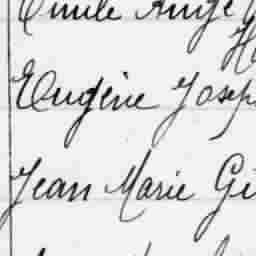 Emile Ange
Eugène Josep
Jean Marie Gi